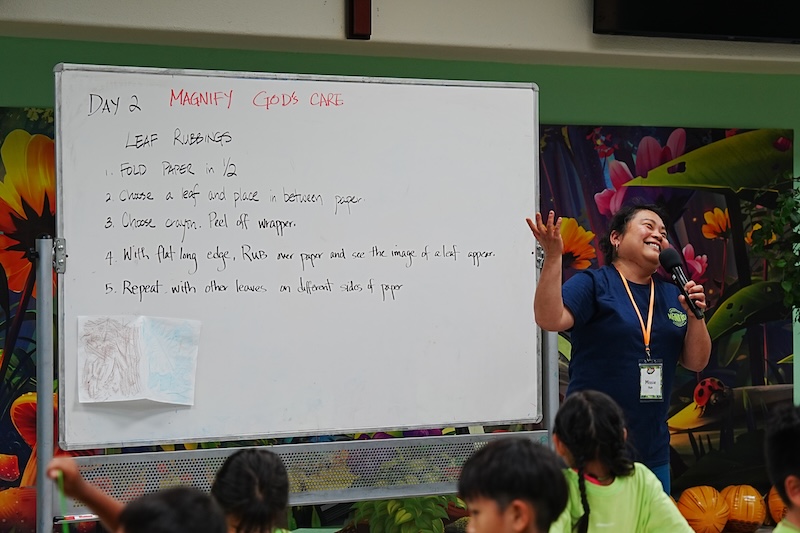 DAY 2 MAGNIFY GOD'S CARE
LEAF RUBBINGS
1. FOLD PAPER in 1/2
2. Choose a leaf and place in between paper.
3. Choose crayon. Peel off wrapper.
4. With flat long edge, RUB over paper and see the image of a leaf appear.
5. Repeat with other leaves on different sides of paper